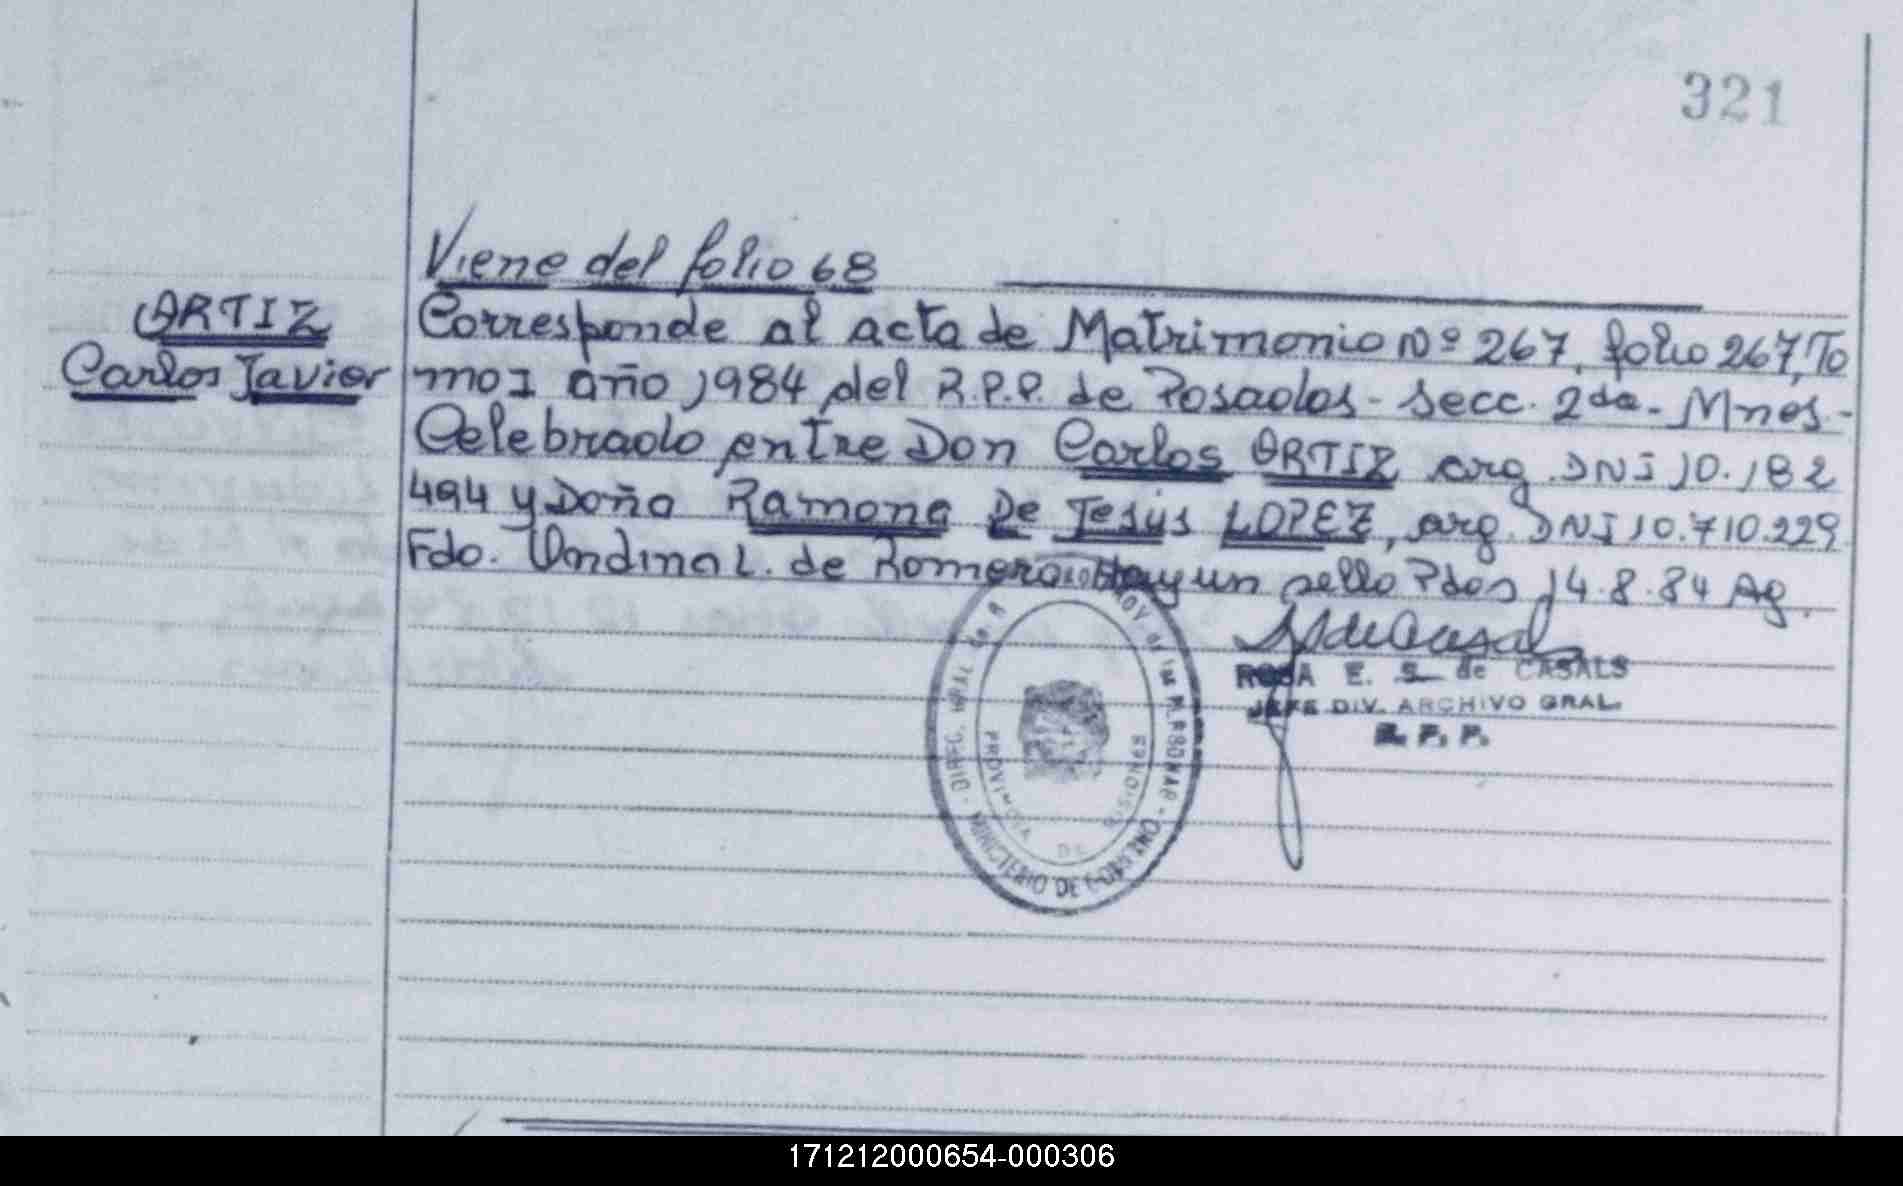 321
Viene del folio 68
ORTIZ
Carlos Javier
Corresponde al acta de Matrimonio Nº 267, folio 267, To
mo I año 1984 del R.P.P. de Posadas - Secc. 2da - Mnes. -
Celebrado entre Don Carlos ORTIZ arg. DNI 10.182
494 y Doña Ramona De Jesús LOPEZ, arg. DNI 10.710.229
Fdo. Undina L. de Romero Hay un sello Pdas 14.8.84 Ag.
ROSA E. S. de CASALS
JEFE DIV. ARCHIVO GRAL.
R. P. P.
PROVINCIA DE MISIONES
MINISTERIO DE GOBIERNO
171212000654-000306